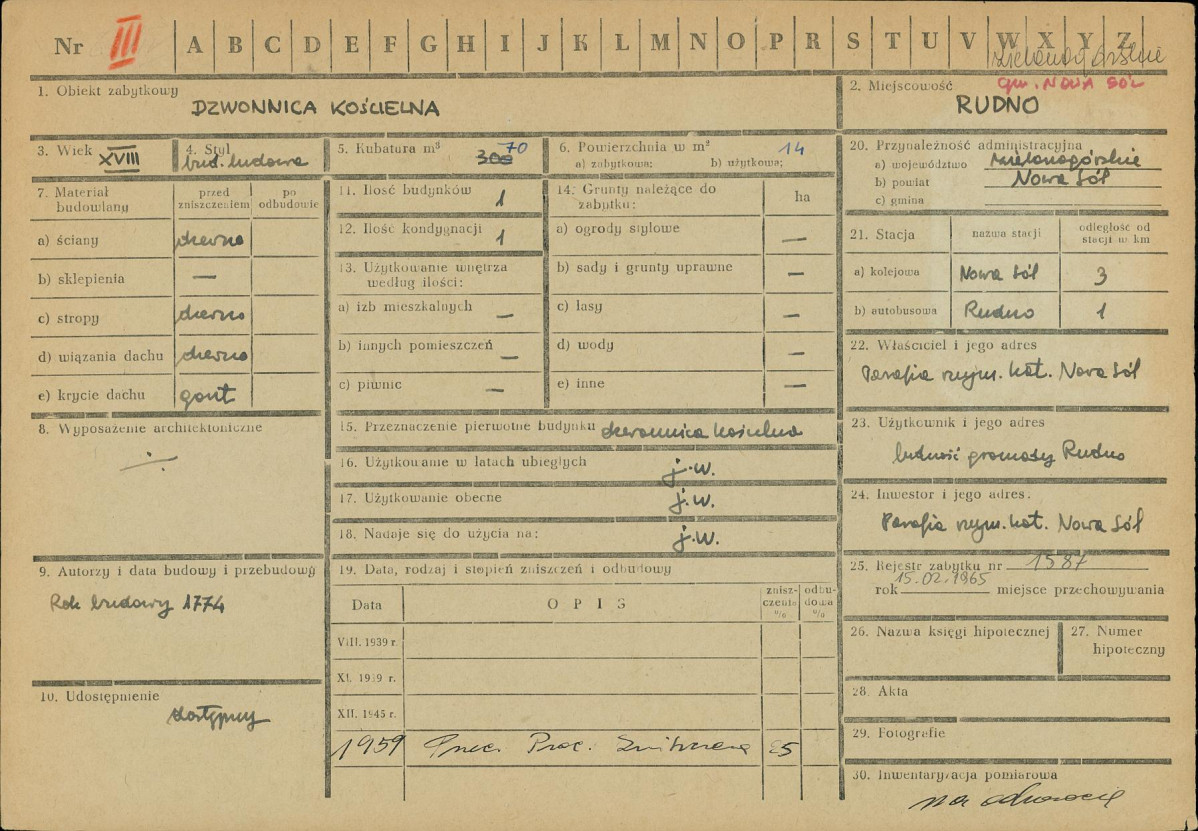 Nr III A B C D E F G H I J K L M N O P R S T U V W X Y Z
zielonogórskie
gm. NOWA SÓL
1. Obiekt zabytkowy
DZWONNICA KOŚCIELNA
2. Miejscowość
RUDNO
3. Wiek XVIII
4. Styl bud. ludowa
5. Kubatura m³ 300 70
6. Powierzchnia w m²
a) zabytkowa: b) użytkowa: 14
7. Materiał budowlany
przed zniszczeniem
po odbudowie
a) ściany drewno
b) sklepienia —
c) stropy drewno
d) wiązania dachu drewno
e) krycie dachu gont
8. Wyposażenie architektoniczne
·/·
9. Autorzy i data budowy i przebudowy
Rok budowy 1774
10. Udostępnienie
dostępny
11. Ilość budynków 1
12. Ilość kondygnacji 1
13. Użytkowanie wnętrza
według ilości:
a) izb mieszkalnych —
b) innych pomieszczeń —
c) piwnic —
14. Grunty należące do
zabytku:
ha
a) ogrody stylowe —
b) sady i grunty uprawne —
c) lasy —
d) wody —
e) inne —
15. Przeznaczenie pierwotne budynku dzwonnica kościelna
16. Użytkowanie w latach ubiegłych j.w.
17. Użytkowanie obecne j.w.
18. Nadaje się do użycia na: j.w.
19. Data, rodzaj i stopień zniszczeń i odbudowy
Data OPIS zniszczenia % odbudowa %
VIII. 1939 r.
XI. 1939 r.
XII. 1945 r.
1959 25
20. Przynależność administracyjna
a) województwo zielonogórskie
b) powiat Nowa Sól
c) gmina
21. Stacja nazwa stacji odległość od stacji w km
a) kolejowa Nowa Sól 3
b) autobusowa Rudno 1
22. Właściciel i jego adres
Parafia rzym. kat. Nowa Sól
23. Użytkownik i jego adres
ludność gromady Rudno
24. Inwestor i jego adres.
Parafia rzym. kat. Nowa Sól
25. Rejestr zabytku nr 1587
rok 15.02.1965 miejsce przechowywania
26. Nazwa księgi hipotecznej
27. Numer
hipoteczny
28. Akta
29. Fotografie
30. Inwentaryzacja pomiarowa
na odwrocie